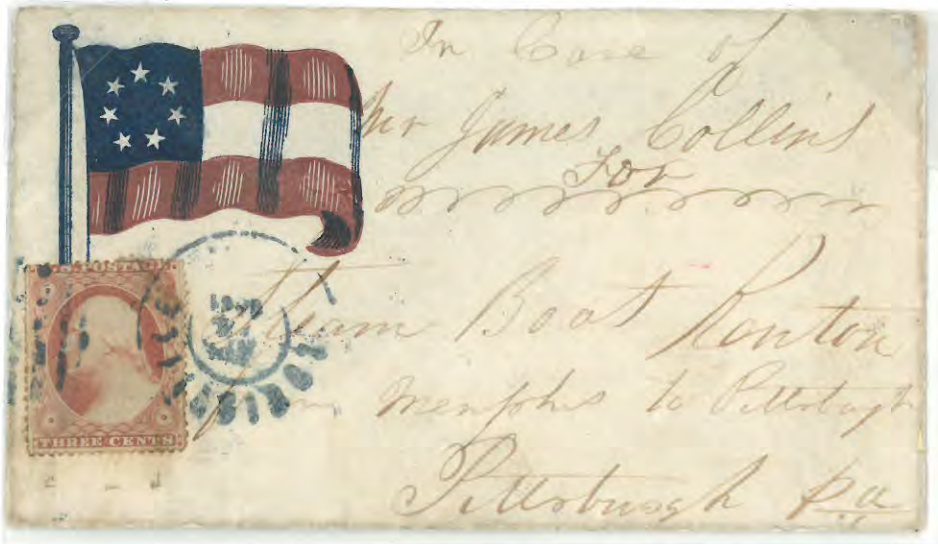 In Care of
Mr James Collins
For
Steam Boat Kenton
from Memphis to Pittsburgh
Pittsburgh Pa
U.S. POSTAGE.
THREE CENTS